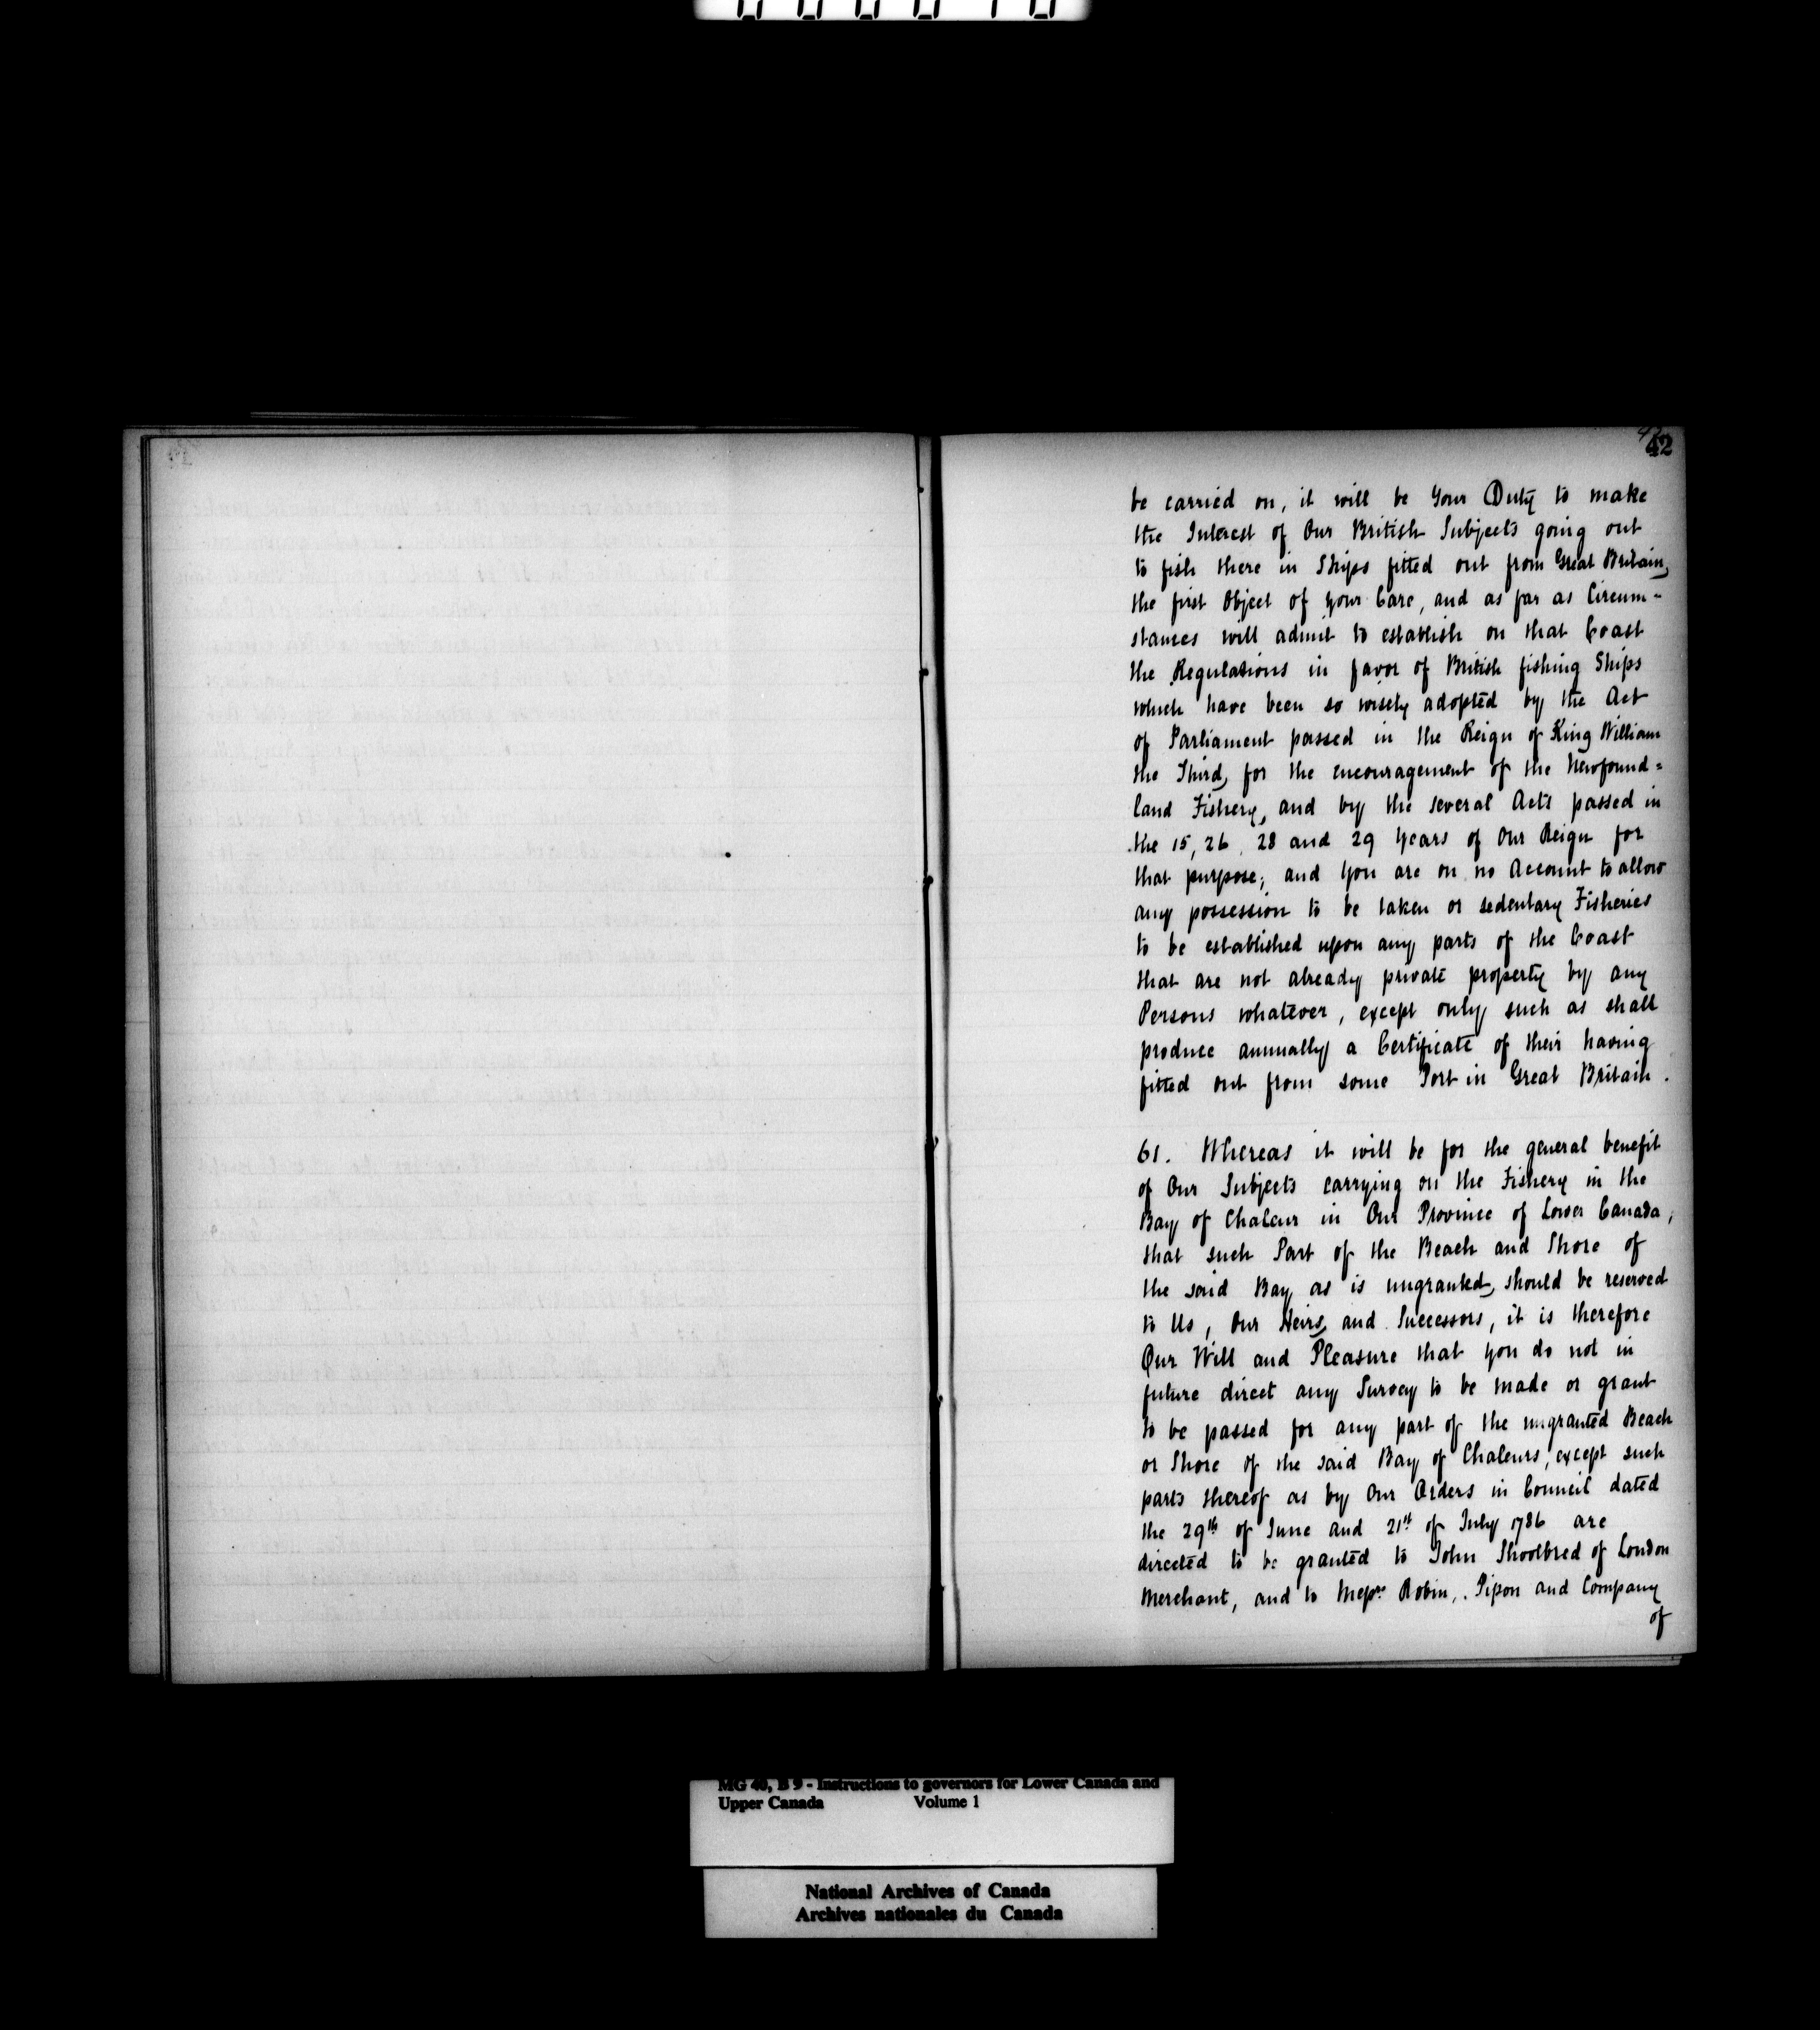 42
be carried on, it will be Your Duty to make
the Interest of Our British Subjects going out
to fish there in Ships fitted out from Great Britain,
the first Object of your Care, and as far as Circum-
stances will admit to establish on that Coast
the Regulations in favor of British fishing Ships
which have been so wisely adopted by the Act
of Parliament passed in the Reign of King William
the Third, for the encouragement of the Newfound=
land Fishery, and by the several Acts passed in
the 15, 26, 28 and 29 Years of Our Reign for
that purpose; and You are on no Account to allow
any possession to be taken or sedentary Fisheries
to be established upon any parts of the Coast
that are not already private property by any
Persons whatever, except only such as shall
produce annually a Certificate of their having
fitted out from some Port in Great Britain.
61. Whereas it will be for the general benefit
of Our Subjects carrying on the Fishery in the
Bay of Chaleur in Our Province of Lower Canada,
that such Part of the Beach and Shore of
the said Bay as is ungranted, should be reserved
to Us, Our Heirs, and Successors, it is therefore
Our Will and Pleasure that you do not in
future direct any Survey to be made or grant
to be passed for any part of the ungranted Beach
or Shore of the said Bay of Chaleurs, except such
parts thereof as by Our Orders in Council dated
the 29th of June and 21st of July 1786 are
directed to be granted to John Shoolbred of London
Merchant, and to Messrs Robin, Pipon and Company
of
MG 40, B 9 - Instructions to governors for Lower Canada and
Upper Canada Volume 1
National Archives of Canada
Archives nationales du Canada